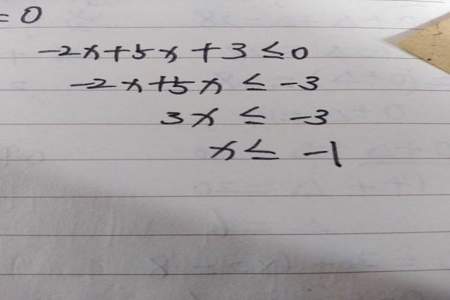 = 0
-2x+5x+3 ≤ 0
-2x+5x ≤ -3
3x ≤ -3
x ≤ -1